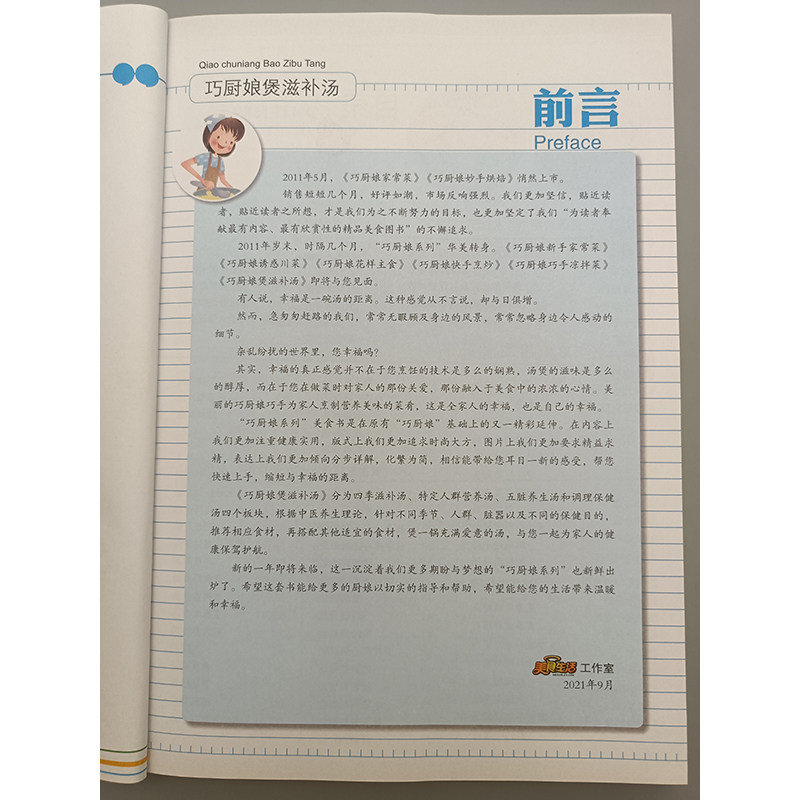 Qiao chuniang Bao Zibu Tang
巧厨娘煲滋补汤
前言
Preface
2011年5月，《巧厨娘家常菜》《巧厨娘妙手烘焙》悄然上市。
销售短短几个月，好评如潮，市场反响强烈。我们更加坚信，贴近读
者，贴近读者之所想，才是我们为之不断努力的目标，也更加坚定了我们“为读者奉
献最有内容、最有欣赏性的精品美食图书”的不懈追求。
2011年岁末，时隔几个月，“巧厨娘系列”华美转身。《巧厨娘新手家常菜》
《巧厨娘诱惑川菜》《巧厨娘花样主食》《巧厨娘快手烹炒》《巧厨娘巧手凉拌菜》
《巧厨娘煲滋补汤》即将与您见面。
有人说，幸福是一碗汤的距离。这种感觉从不言说，却与日俱增。
然而，急匆匆赶路的我们，常常无暇顾及身边的风景，常常忽略身边令人感动的
细节。
杂乱纷扰的世界里，您幸福吗？
其实，幸福的真正感觉并不在于您烹饪的技术是多么的娴熟，汤煲的滋味是多么
的醇厚，而在于您在做菜时对家人的那份关爱，那份融入于美食中的浓浓的心情。美
丽的巧厨娘巧手为家人烹制营养美味的菜肴，这是全家人的幸福，也是自己的幸福。
“巧厨娘系列”美食书是在原有“巧厨娘”基础上的又一精彩延伸。在内容上
我们更加注重健康实用，版式上我们更加追求时尚大方，图片上我们更加要求精益求
精，表达上我们更加倾向分步详解，化繁为简，相信能带给您耳目一新的感受，帮您
快速上手，缩短与幸福的距离。
《巧厨娘煲滋补汤》分为四季滋补汤、特定人群营养汤、五脏养生汤和调理保健
汤四个板块，根据中医养生理论，针对不同季节、人群、脏器以及不同的保健目的，
推荐相应食材，再搭配其他适宜的食材，煲一锅充满爱意的汤，与您一起为家人的健
康保驾护航。
新的一年即将来临，这一沉淀着我们更多期盼与梦想的“巧厨娘系列”也新鲜出
炉了。希望这套书能给更多的厨娘以切实的指导和帮助，希望能给您的生活带来温暖
和幸福。
美食生活 工作室
2021年9月